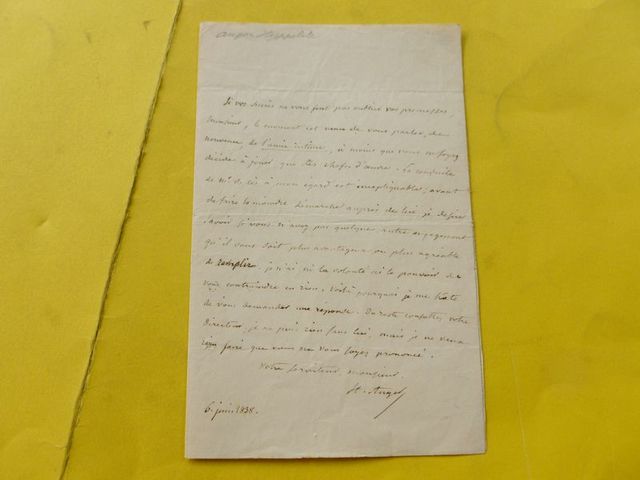 Si vos succès ne vous font pas oublier vos promesses,
monsieur, le moment est venu de vous parler, de
nouveau, de l'amie intime, à moins que vous ne soyez
décidé à jouer que des chefs d'œuvre. La conduite
de Mr. de à mon égard est inexplicable; avant
de faire la moindre démarche auprès de lui je désire
savoir si vous n'avez pas quelque autre engagement
qu'il vous soit plus avantageux ou plus agréable
de remplir. je n'ai ni la volonté ni le pouvoir de
vous contraindre en rien. Voilà pourquoi je me hâte
de vous demander une réponse. Du reste consultez votre
directeur, je ne puis rien sans lui, mais je ne veux
rien faire que vous ne vous soyez prononcé.
Votre serviteur monsieur.
St. Ange
6. juin 1838.